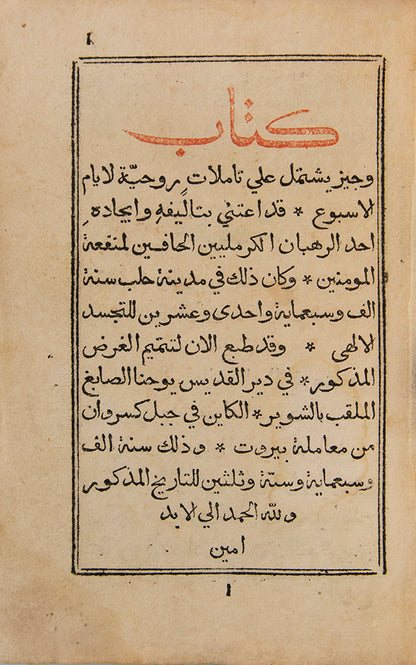 ١
كتاب
وجيز يشتمل علي تاملات روحيّة لايام
الاسبوع * قد اعتني بتاليفهِ وايجادهِ
احد الرهبان الكرمليين الحافين لمنفعة
المومنين * وكان ذلك في مدينة حلب سنة
الف وسبعماية واحدى وعشرين للتجسد
الالهي * وقد طبع الان لتتميم الغرض
المذكور * في دير القديس يوحنا الصايغ
الملقب بالشوير * الكاين في جبل كسروان
من معاملة بيروت * وذلك سنة الف
وسبعماية وستة وثلثين للتاريخ المذكور
ولله الحمد الي الابد
امين
١